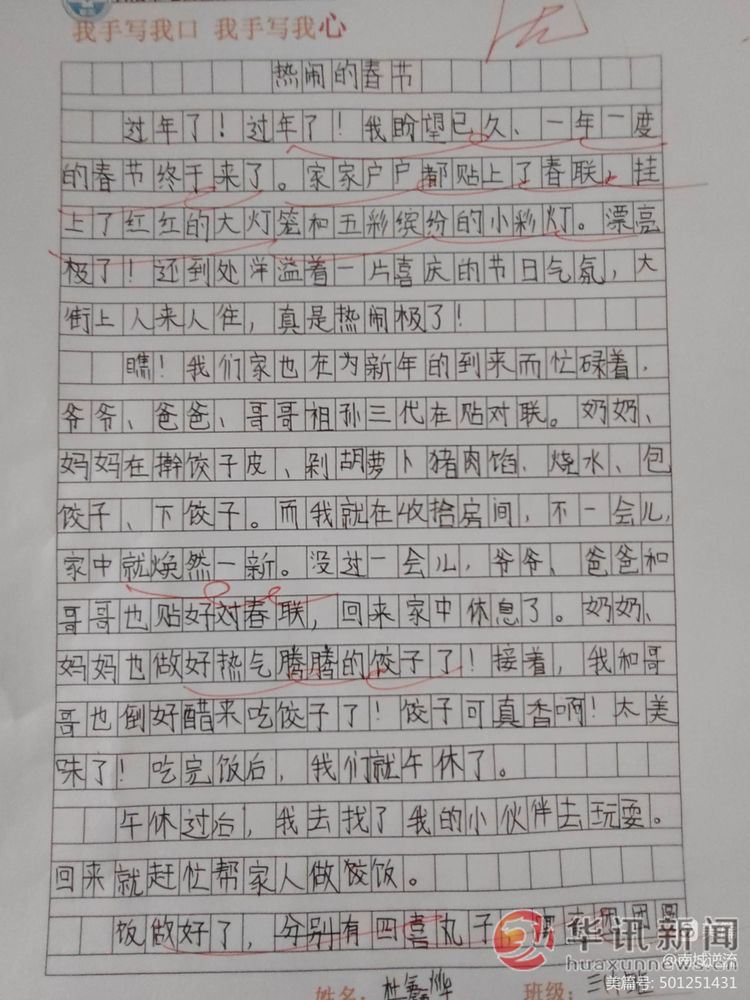 我手写我口 我手写我心
热闹的春节
过年了！过年了！我盼望已久、一年一度
的春节终于来了。家家户户都贴上了春联，挂
上了红红的大灯笼和五彩缤纷的小彩灯。漂亮
极了！还到处洋溢着一片喜庆的节日气氛，大
街上人来人往，真是热闹极了！
瞧！我们家也在为新年的到来而忙碌着，
爷爷、爸爸、哥哥祖孙三代在贴对联。奶奶、
妈妈在擀饺子皮、剁胡萝卜猪肉馅、烧水、包
饺子、下饺子。而我就在收拾房间，不一会儿，
家中就焕然一新。没过一会儿，爷爷、爸爸和
哥哥也贴好对春联，回来家中休息了。奶奶、
妈妈也做好热气腾腾的饺子了！接着，我和哥
哥也倒好醋来吃饺子了！饺子可真香啊！太美
味了！吃完饭后，我们就午休了。
午休过后，我去找了我的小伙伴去玩耍。
回来就赶忙帮家人做饺饭。
饭做好了，分别有四喜丸子、
华讯新闻
huaxunnews.cn
@南城逆流
美篇号：501251431
姓名： 班级：三